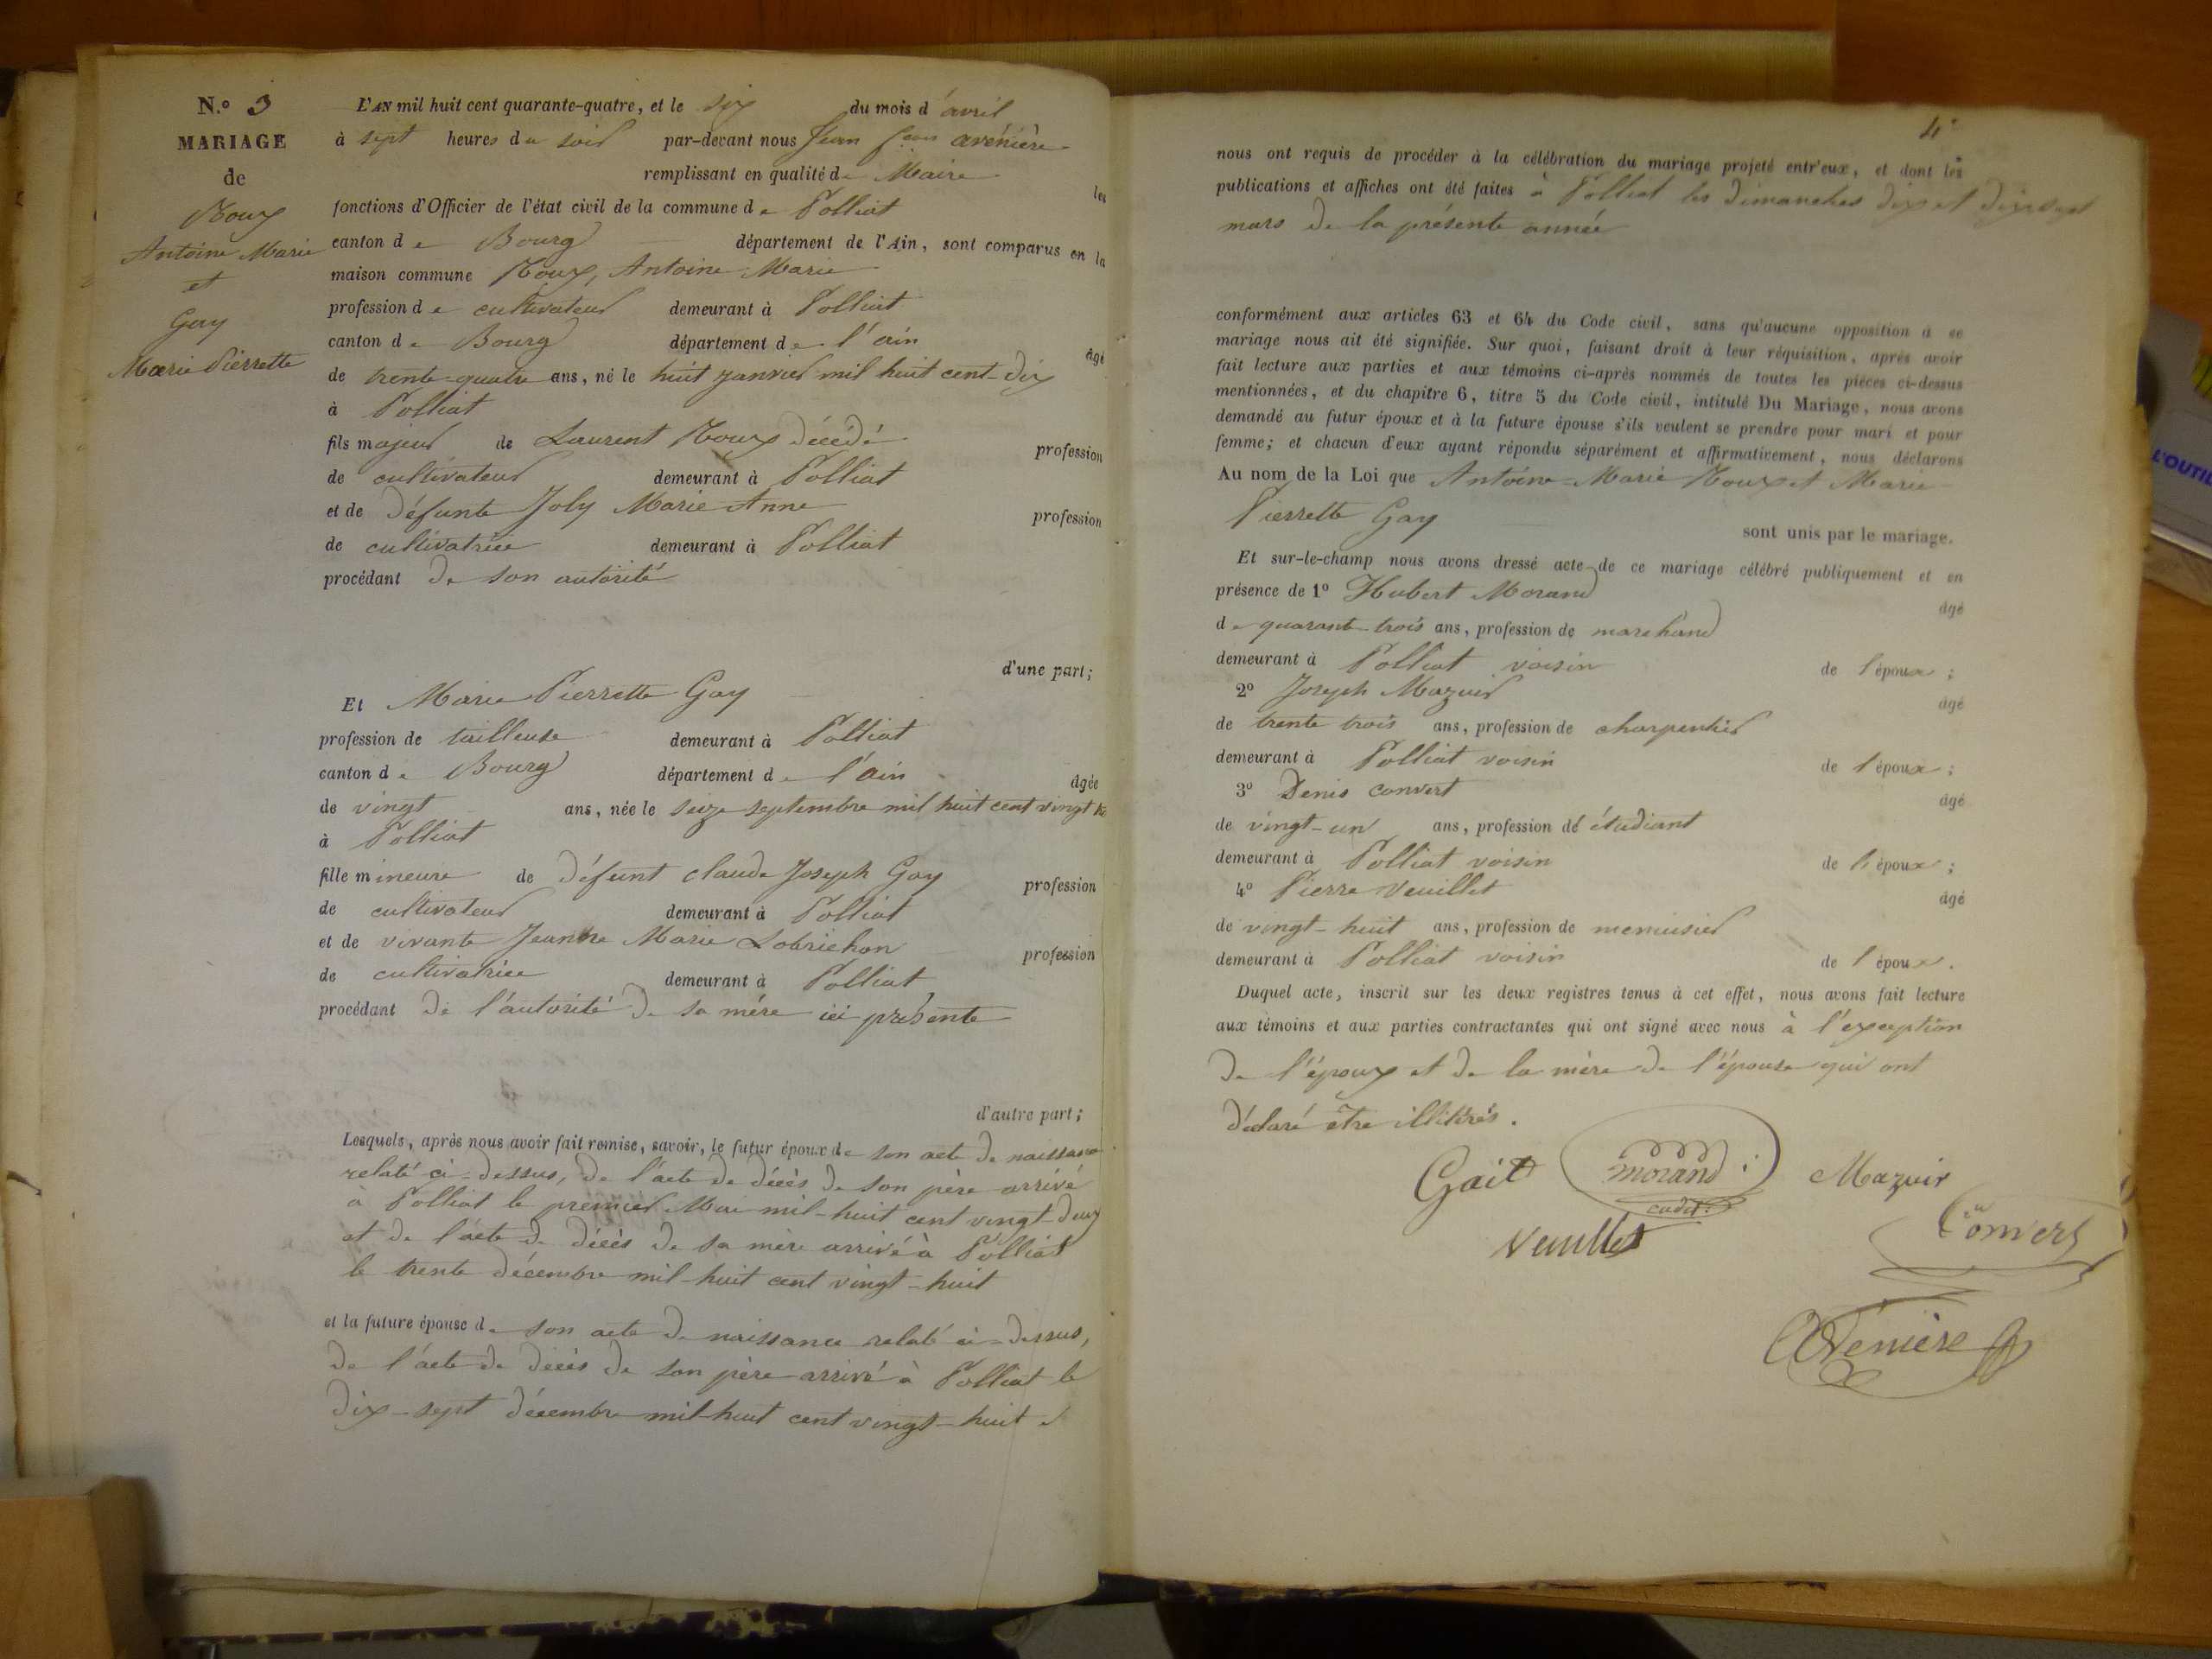 N.º 3
MARIAGE
de
Roux
Antoine Marie
et
Gay
Marie Pierrette
L'AN mil huit cent quarante-quatre, et le six du mois d'avril
à sept heures du soir par-devant nous Jean fçois avénière
remplissant en qualité de Maire les
fonctions d'Officier de l'état civil de la commune de Polliat
canton de Bourg département de l'Ain, sont comparus en la
maison commune Roux, Antoine Marie
profession de cultivateur demeurant à Polliat
canton de Bourg département de l'ain âgé
de trente-quatre ans, né le huit janvier mil huit cent-dix
à Polliat
fils majeur de Laurent Roux décédé profession
de cultivateur demeurant à Polliat
et de défunte Joly Marie Anne profession
de cultivatrice demeurant à Polliat
procédant de son autorité
d'une part;
Et Marie Pierrette Gay
profession de tailleuse demeurant à Polliat
canton de Bourg département de l'ain âgée
de vingt ans, née le seize septembre mil huit cent vingt
à Polliat
fille mineure de défunt claude Joseph Gay profession
de cultivateur demeurant à Polliat
et de vivante Jeanne Marie Lobrichon profession
de cultivatrice demeurant à Polliat
procédant de l'autorité de sa mère ici présente
d'autre part;
Lesquels, après nous avoir fait remise, savoir, le futur époux de son acte de naissance
relaté ci-dessus, de l'acte de décès de son père arrivé
à Polliat le premier Mai mil-huit cent vingt-deux
et de l'acte de décès de sa mère arrivé à Polliat
le trente décembre mil-huit cent vingt-huit
et la future épouse de son acte de naissance relaté ci-dessus,
de l'acte de décès de son père arrivé à Polliat le
dix-sept décembre mil-huit cent vingt-huit et
4
nous ont requis de procéder à la célébration du mariage projeté entr'eux, et dont les
publications et affiches ont été faites à Polliat les dimanches dix et dix-sept
mars de la présente année
conformément aux articles 63 et 64 du Code civil, sans qu'aucune opposition à ce
mariage nous ait été signifiée. Sur quoi, faisant droit à leur réquisition, après avoir
fait lecture aux parties et aux témoins ci-après nommés de toutes les pièces ci-dessus
mentionnées, et du chapitre 6, titre 5 du Code civil, intitulé Du Mariage, nous avons
demandé au futur époux et à la future épouse s'ils veulent se prendre pour mari et pour
femme; et chacun d'eux ayant répondu séparément et affirmativement, nous déclarons
Au nom de la Loi que Antoine-Marie Roux et Marie
Pierrette Gay sont unis par le mariage.
Et sur-le-champ nous avons dressé acte de ce mariage célébré publiquement et en
présence de 1º Hubert Morand âgé
de quarante-trois ans, profession de marchand
demeurant à Polliat voisin de l'époux;
2º Joseph Mazuir âgé
de trente trois ans, profession de charpentier
demeurant à Polliat voisin de l'époux;
3º Denis convert âgé
de vingt-un ans, profession dé étudiant
demeurant à Polliat voisin de l'époux;
4º Pierre Veuillet âgé
de vingt-huit ans, profession de menuisier
demeurant à Polliat voisin de l'époux.
Duquel acte, inscrit sur les deux registres tenus à cet effet, nous avons fait lecture
aux témoins et aux parties contractantes qui ont signé avec nous à l'exception
de l'époux et de la mère de l'épouse qui ont
déclaré être illitérés.
Gait morand cadet. Mazuir
Veuillet Convert
Avénière
L'OUTIL